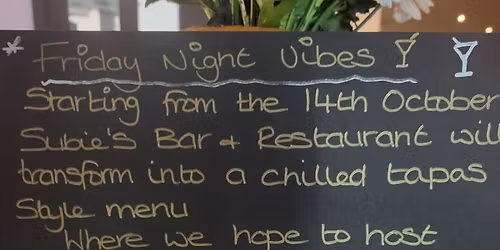 * Friday Night Vibes
Starting from the 14th October
Subie's Bar & Restaurant will
transform into a chilled tapas
Style menu
Where we hope to host